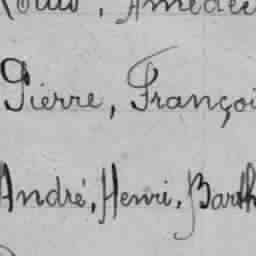 Louis, Amédée
Pierre, Françoi
André, Henri, Barth